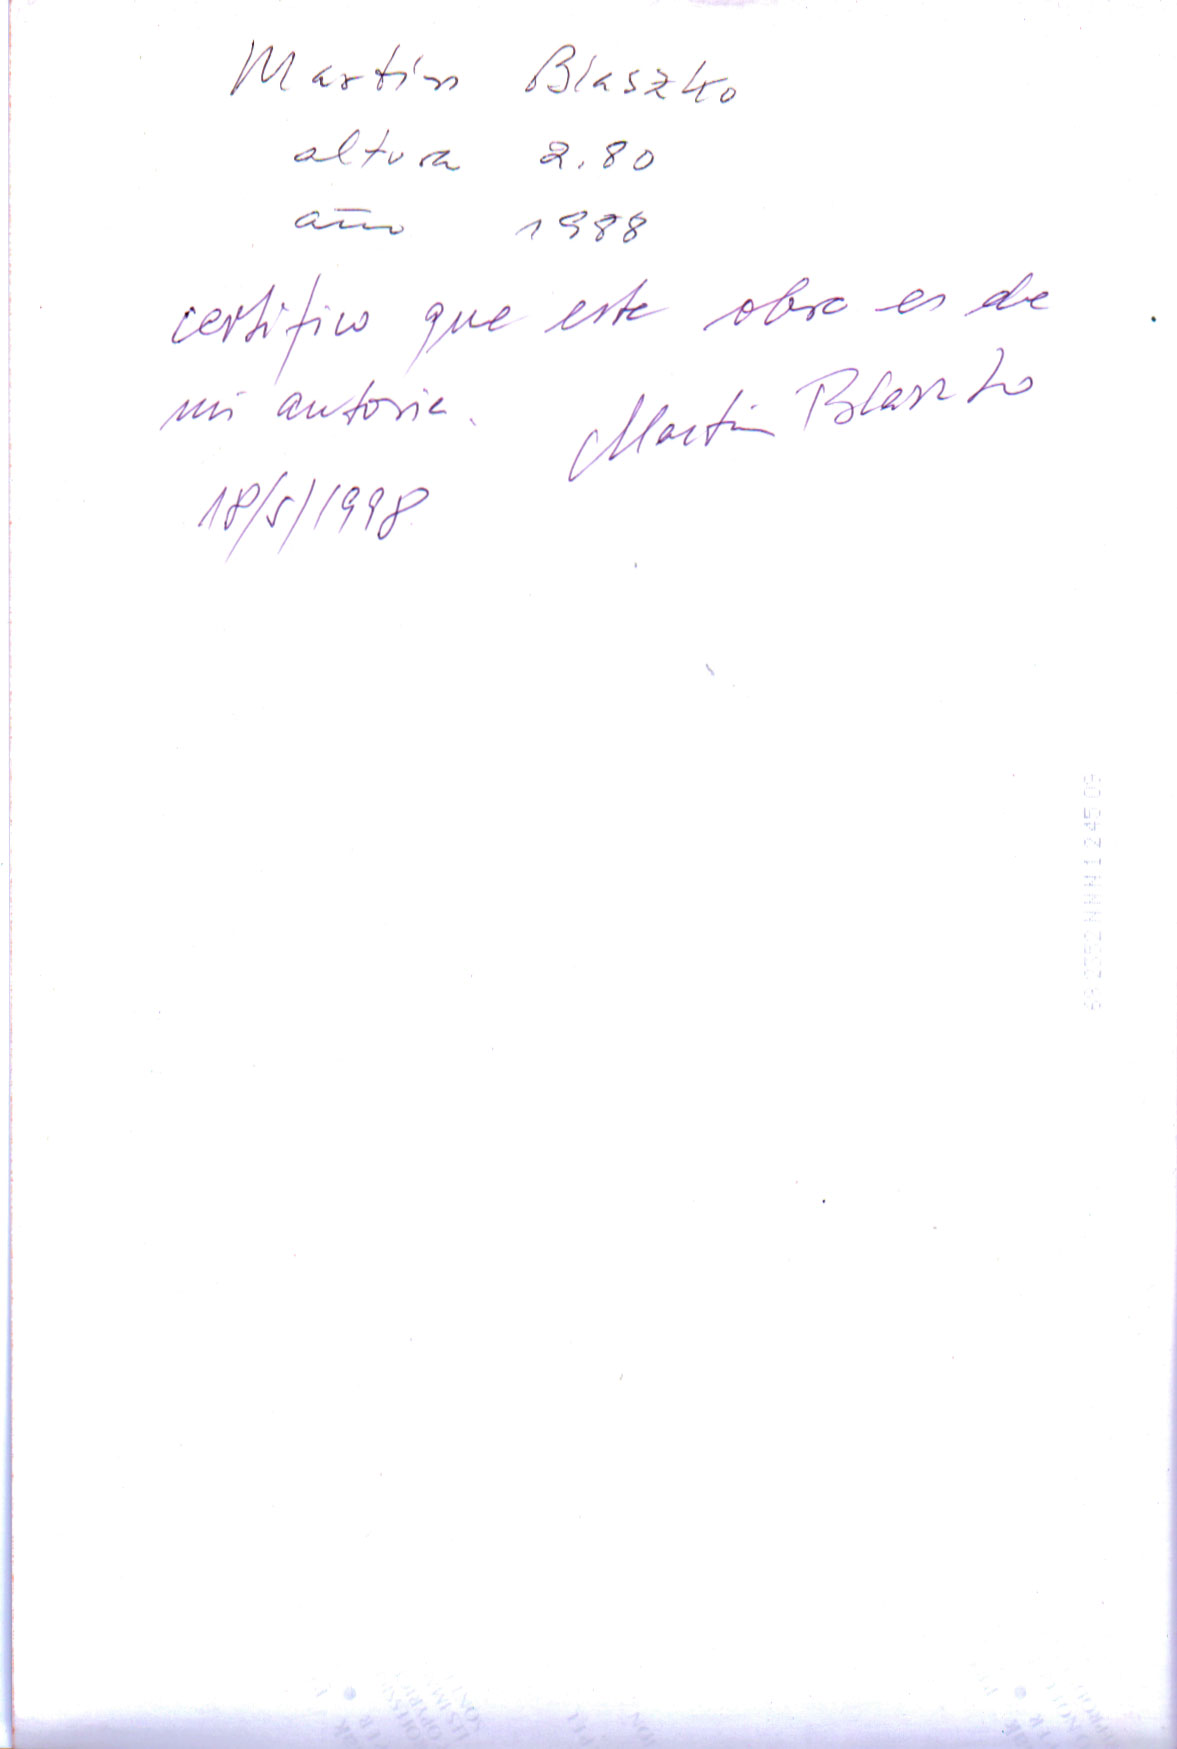 Martín Blaszko
altura 2.80
año 1988
certifico que esta obra es de
mi autoria.
Martin Blaszko
18/5/1998